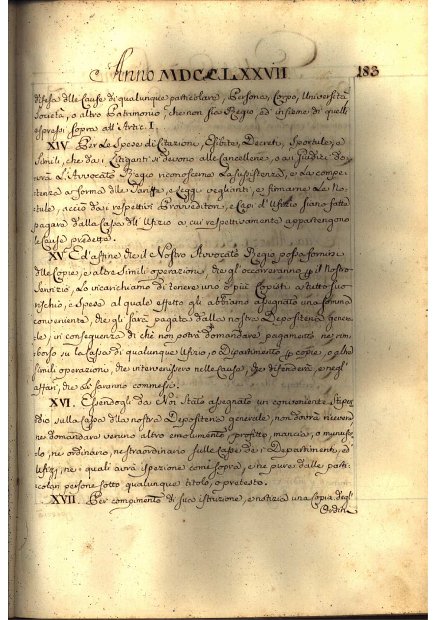 Anno MDCCLXXVII 183
difesa dlle Cause di qualunque particolare, Persona, Corpo, Università
Società, o altro Patrimonio, che non sia Regio, ad insieme di quelli
espressi sopra all'Artic. I.
XIV Per Le Spese di Citazioni, Esibite, Decreti, Sportule, e
Simili, che da i Litiganti si devono alle Cancellerie, o ai Giudici do-
vrà L'Avvocato Regio riconoscerne La sussistenza, e La compe-
tenza a forma dlle Tariffe, e Leggi veglianti, e firmarne Le No-
tule, acciò da i respettivi Provveditori, e Capi d'Ufizio siano fatte
pagare dalla Cassa dll'Ufizio a cui respettivamente appartengono
le Cause predette.
XV Ed affine che il Nostro Avvocato Regio possa fornire
dlle Copie, e altre Simili operazioni, che gl'occorreranno p il nostro
Servizio, Lo incarichiamo di tenere uno o più Copisti a tutto suo
rischio, e Spesa al quale effetto gli abbiamo assegnato una somma
conveniente, che gli sarà pagata dalla nostra Depositeria genera-
le, in conseguenza di che non potrà domandare pagamento, ne rim-
borso su la Cassa di qualunque Ufizio, o Dipartimento p copie, o altre
simili operazioni, che intervenissero nelle Cause, che difenderà, e negl'
affari, che Li saranno commessi.
XVI. Essendogli da Noi Stato assegnato un conveniente Stipen-
dio sulla cassa dlla nostra Depositeria generale, non dovrà ricevere
ne domandare veruno altro emolumento, profitto, mancia, o munuscu-
lo, ne ordinario, ne straordinario sulle Casse de i Dipartimenti, ed
Ufizi, ne i quali avrà ispezione come sopra, e ne pure dalle parti-
colari persone sotto qualunque titolo, o pretesto.
XVII. Per compimento di sua istruzione, e notizia una Copia degl'
Ordin